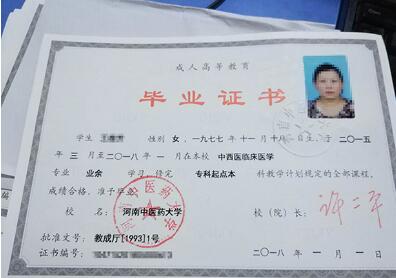 成人高等教育
毕业证书
学生 性别 女，一九七七年十一月十日生，于二〇一五
年三月至二〇一八年一月在本校 中西医临床医学
专业 业余 学习，修完 专科起点本科教学计划规定的全部课程，
成绩合格，准予毕业。
校 名： 河南中医药大学 校（院）长： 许二平
批准文号： 教成厅[1993]1号
证书编号： 二〇一八年一月一日
河南中医药大学